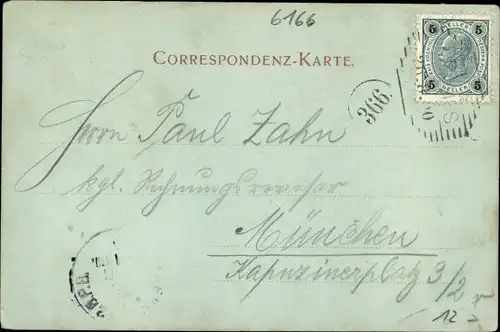 6166
CORRESPONDENZ-KARTE.
5 HELLER 5
5 HELLER 5
366.
Herrn Paul Zahn
kgl. Rechnungsrevisor
München
Kapuzinerplatz 3/2 r
12